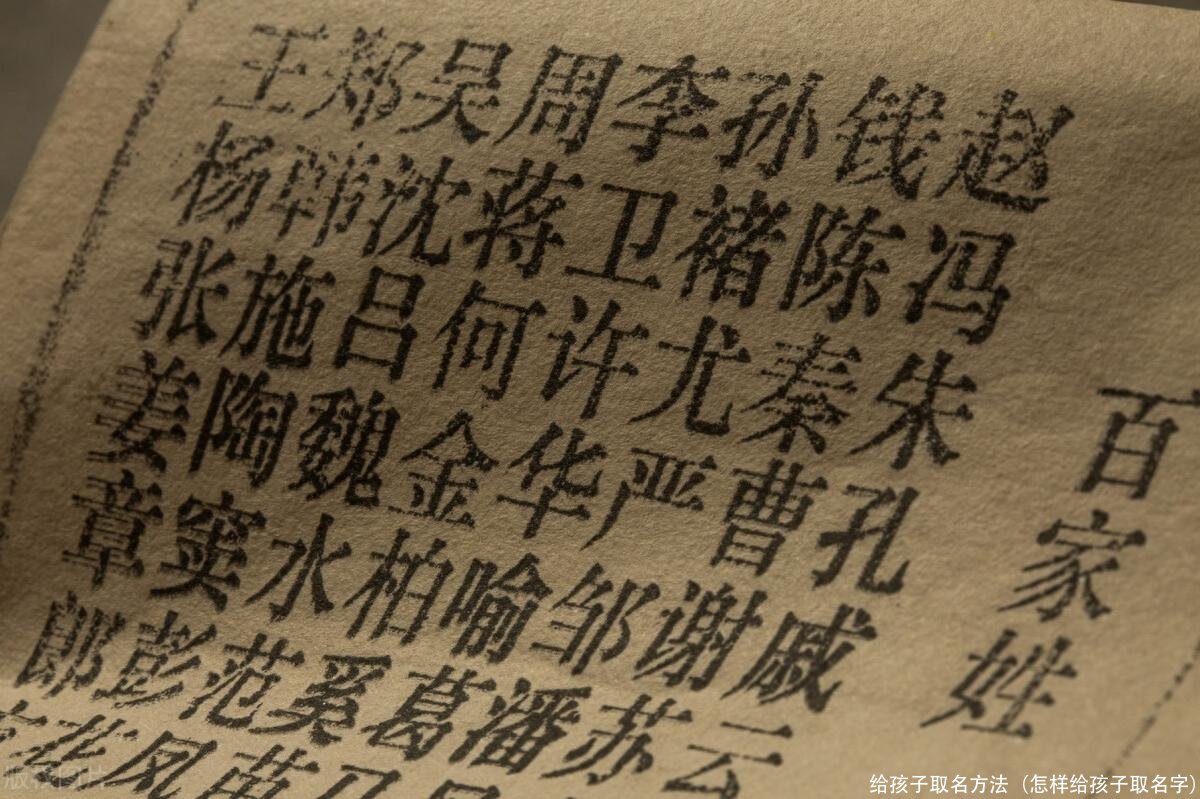 百家姓
赵钱孙李周吴郑王
冯陈褚卫蒋沈韩杨
朱秦尤许何吕施张
孔曹严华金魏陶姜
戚谢邹喻柏水窦章
云苏潘葛奚范彭郎
苗凤花
版权图片
给孩子取名方法（怎样给孩子取名字）